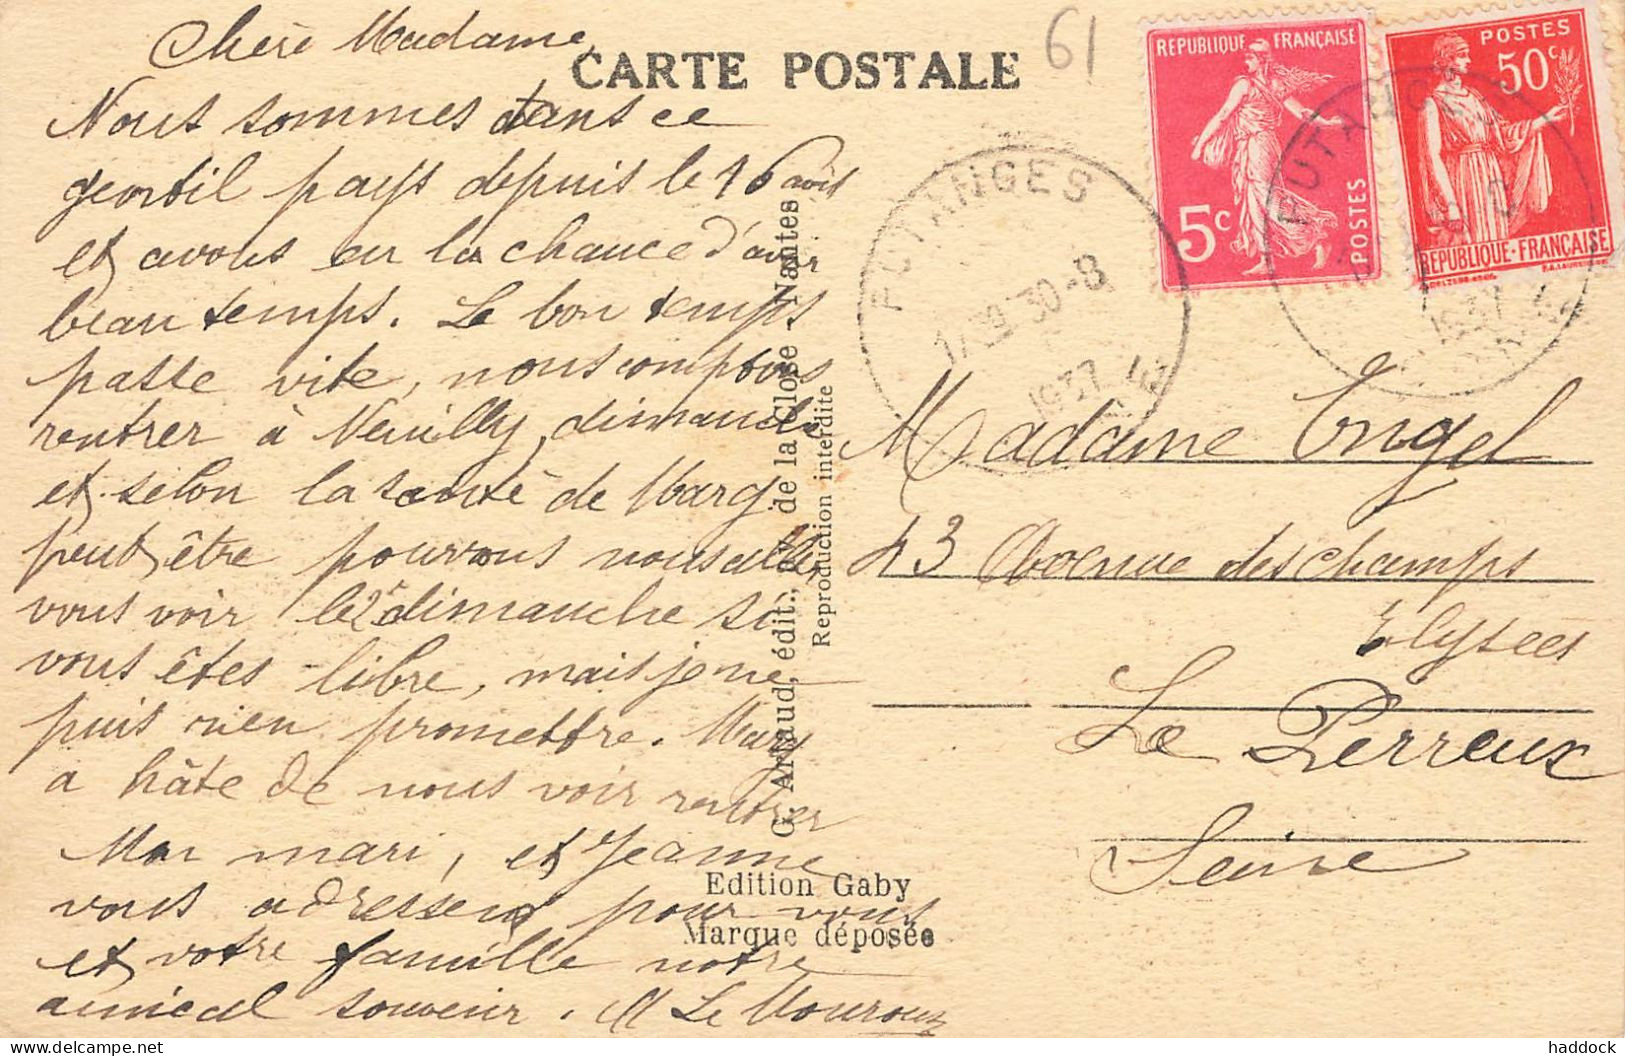 Chère Madame,
CARTE POSTALE
61
Nous sommes dans ce
gentil pays depuis le 16 août
et avons eu la chance d'avoir
beau temps. Le bon temps
passe vite, nous comptons
rentrer à Neuilly, dimanche
et selon la santé de Marg
peut être pourrons nous aller
vous voir le 2e dimanche si
vous êtes libre, mais je ne
puis rien promettre. Marg
a hâte de nous voir rentrer
Mon mari, et Jeanne
vous adressent pour vous
et votre famille notre
amical souvenir. M Le Mouroux
G. Artaud, édit., av. de la Close Nantes
Reproduction interdite
Edition Gaby
Marque déposée
REPUBLIQUE FRANÇAISE
5c
POSTES
POSTES
50c
REPUBLIQUE-FRANÇAISE
PUTANGES
17 30-8
1937
PUTANGES
1937
Madame Engel
43 Avenue des Champs
Elysées
Le Perreux
Seine
haddock